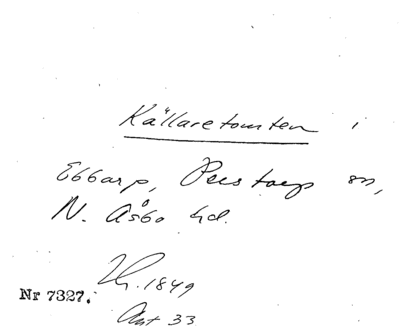 Källaretomten i
Ebbarp, Perstorp sn,
N. Åsbo hd.
1849
Nr 7327.
Akt 33